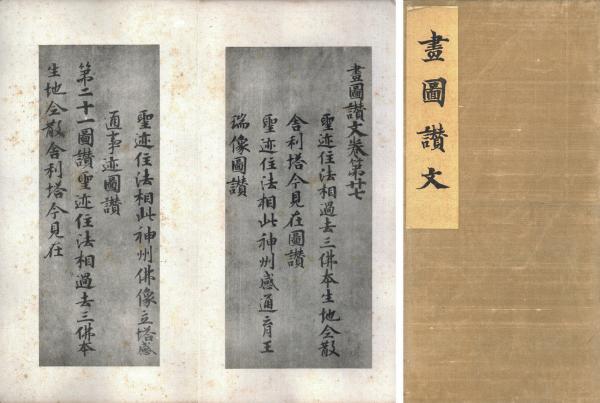 畫圖讚文
畫圖讚文卷第廿七
聖迹住法相過去三佛本生地全散
舍利塔今見在圖讚
聖迹住法相此神州感通育王
瑞像圖讚
聖迹住法相此神州佛像立塔感
通事迹圖讚
第二十一圖讚聖迹住法相過去三佛本
生地全散舍利塔今見在